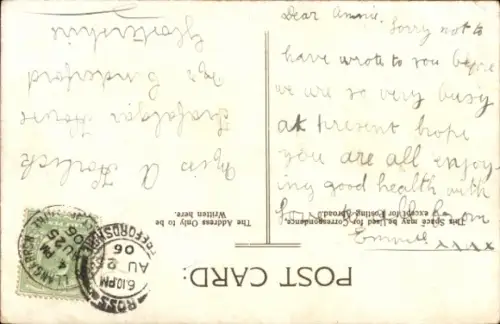 Dear Annie.
Sorry not to
have wrote to you before
we are so very busy
at present hope
you are all enjoy
ing good health with
Emmie xxxx
Miss A Horlick
Trafalgar House
Nr Cinderford
Glostershire
POST CARD:
This Space may be used for Correspondence.
except for Posting Abroad.
The Address Only to be
Written here.
ROSS
6.10 PM
AU 25
06